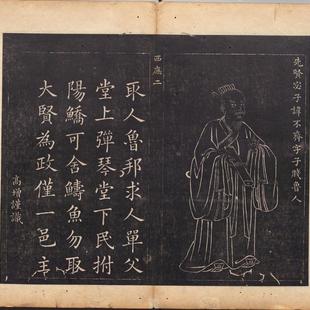 先賢宓子諱不齊字子賤魯人
西廡二
取人魯邦求人單父
堂上彈琴堂下民拊
陽鱎可舍魚勿取
大賢為政僅一邑主
高增謹識